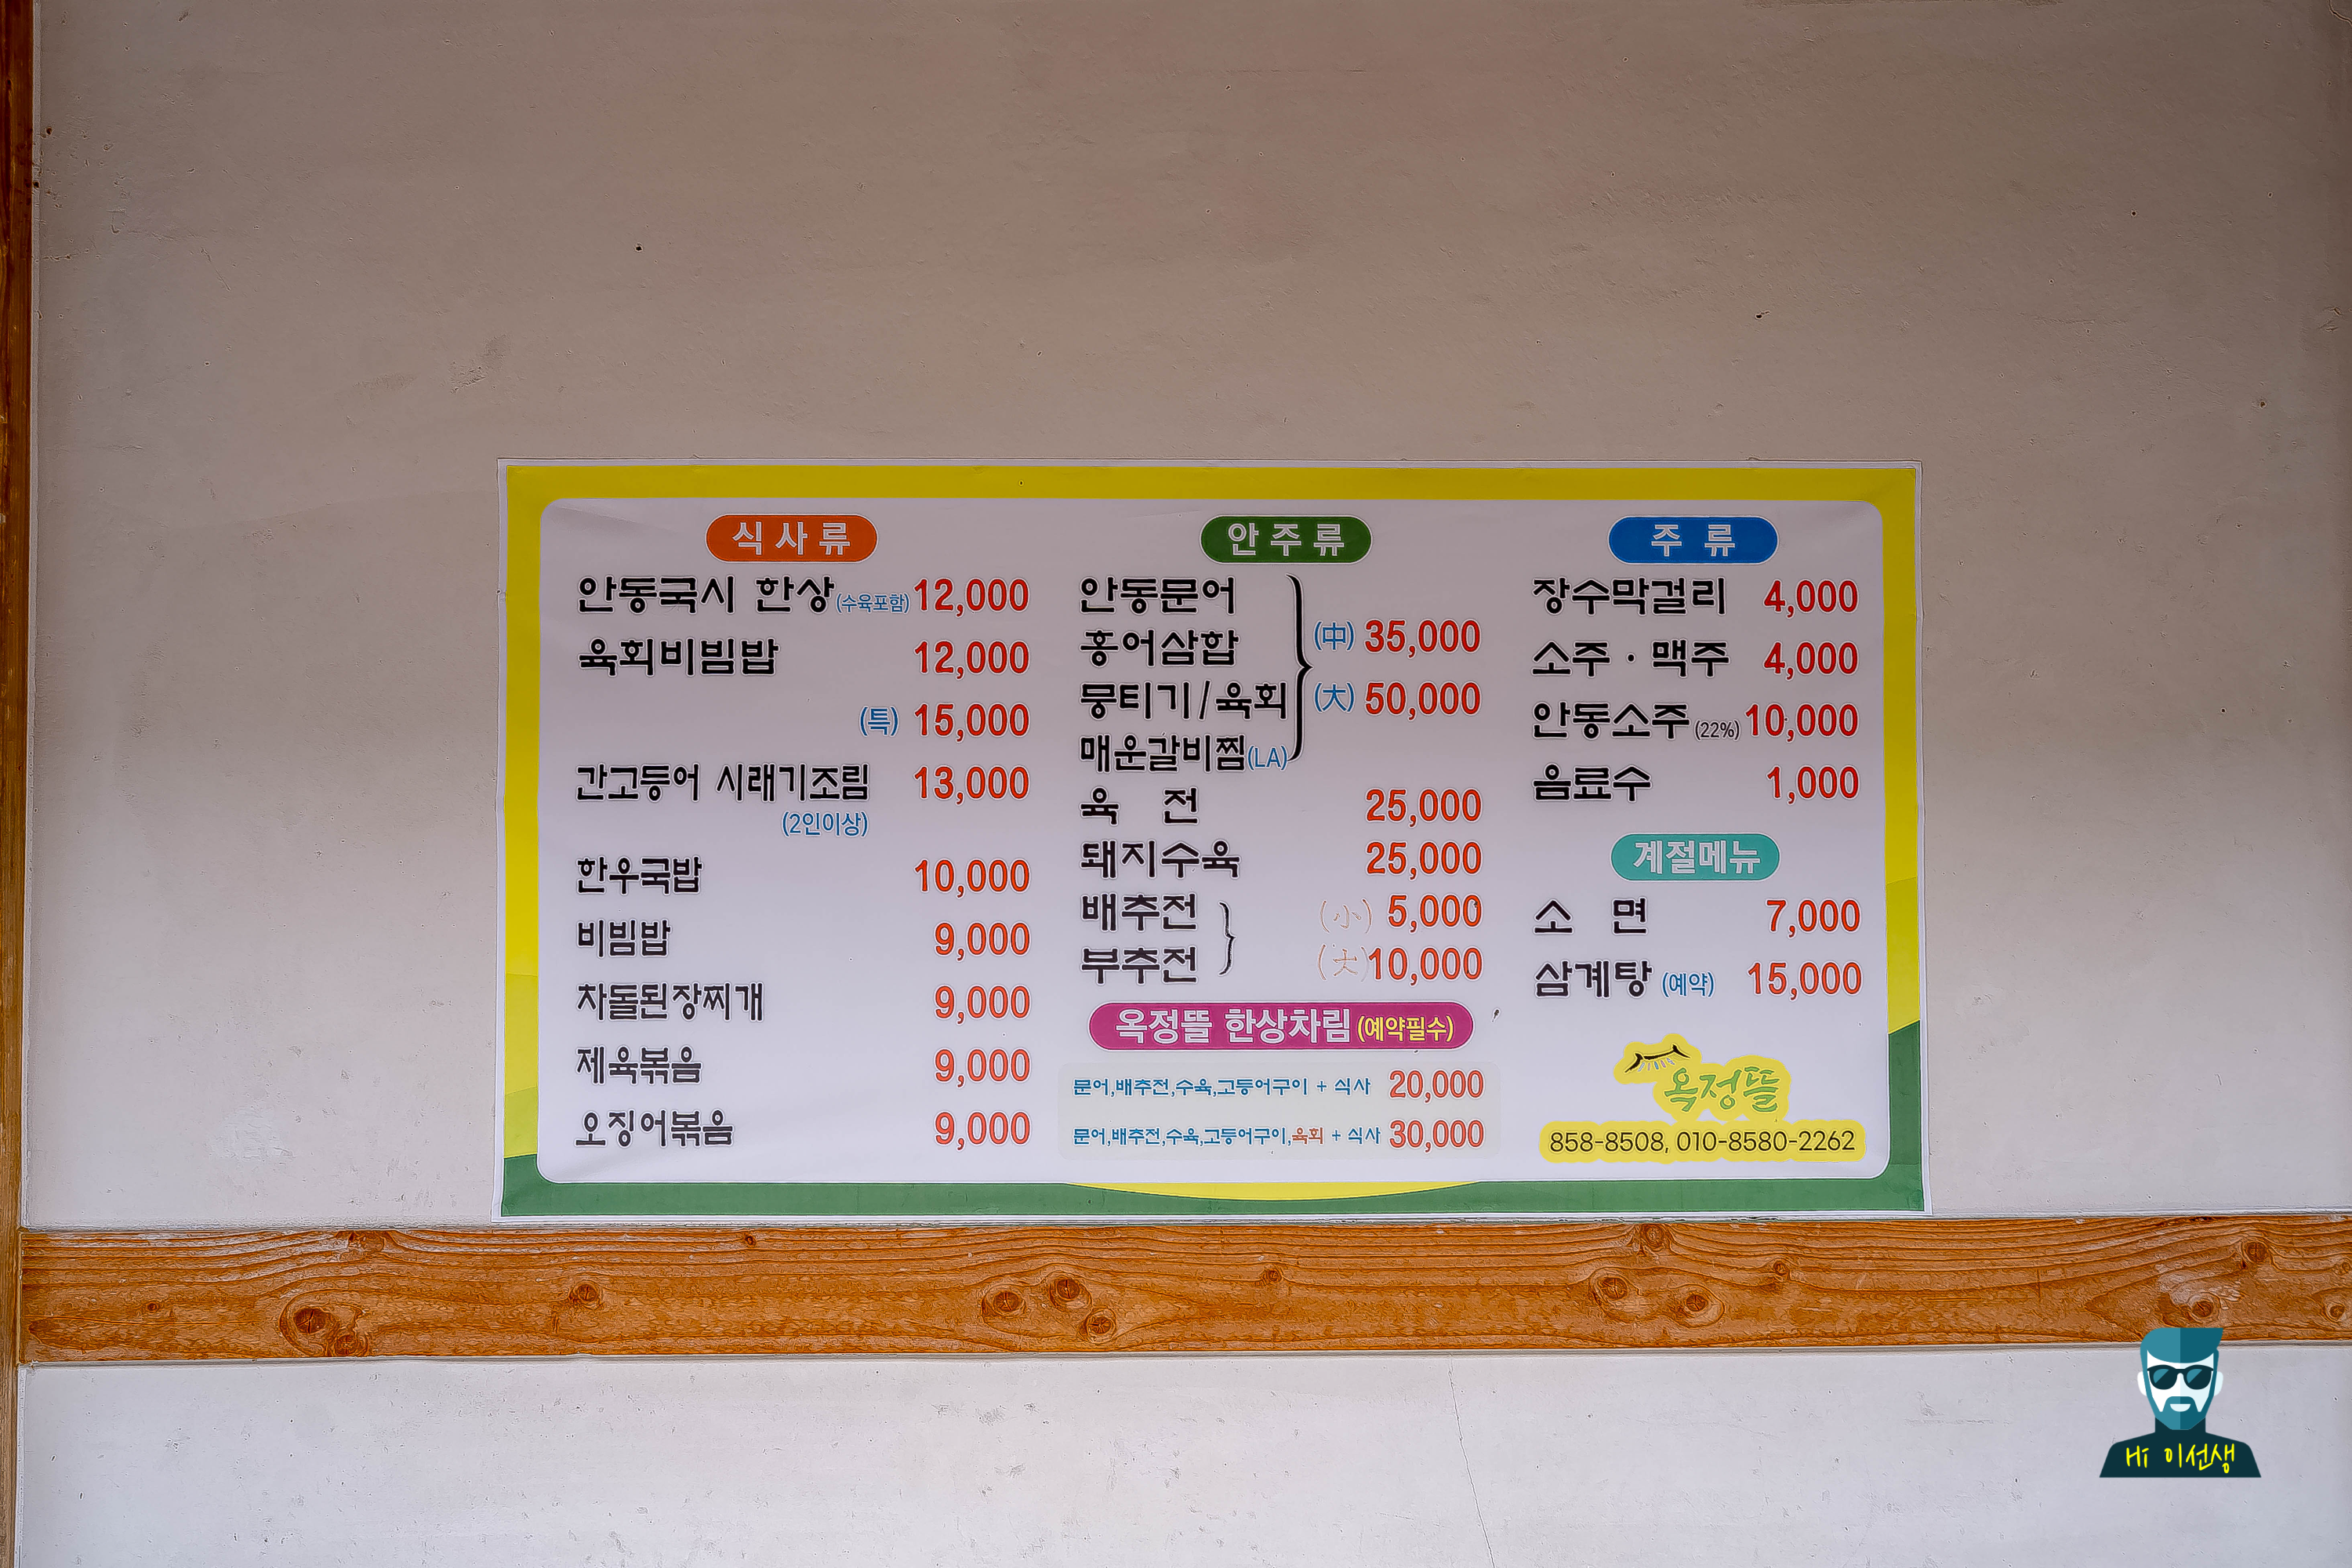 식사류
안동국시 한상(수육포함) 12,000
육회비빔밥 12,000
(특) 15,000
간고등어 시래기조림 13,000
(2인이상)
한우국밥 10,000
비빔밥 9,000
차돌된장찌개 9,000
제육볶음 9,000
오징어볶음 9,000
안주류
안동문어
홍어삼합
(中) 35,000
뭉티기/육회
(大) 50,000
매운갈비찜(LA)
육 전 25,000
돼지수육 25,000
배추전 (小) 5,000
부추전 (大) 10,000
옥정뜰 한상차림(예약필수)
문어,배추전,수육,고등어구이 + 식사 20,000
문어,배추전,수육,고등어구이,육회 + 식사 30,000
주 류
장수막걸리 4,000
소주·맥주 4,000
안동소주(22%) 10,000
음료수 1,000
계절메뉴
소 면 7,000
삼계탕 (예약) 15,000
옥정뜰
858-8508, 010-8580-2262
Hi 이선생